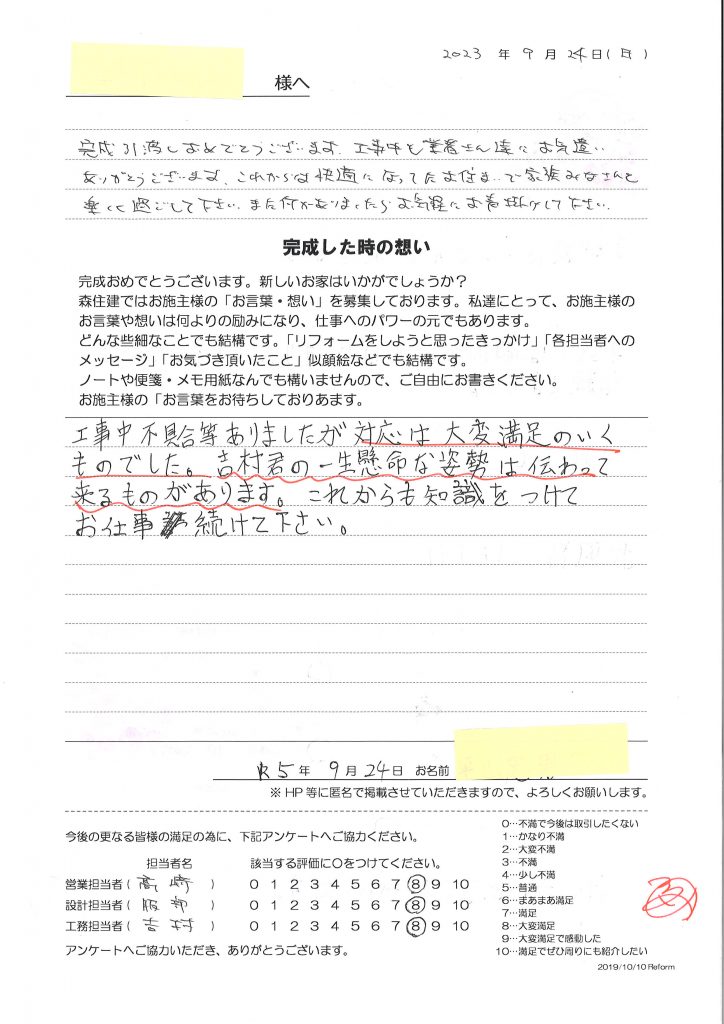 2023 年 9 月 24日(日)
様へ
完成引渡しおめでとうございます。工事中も業者さん達にお気遣い
ありがとうございます。これからは快適になったお住まいで家族みなさんと
過ごして下さい。また何かありましたらお気軽にお声掛けして下さい。
完成した時の想い
完成おめでとうございます。新しいお家はいかがでしょうか？
森住建ではお施主様の「お言葉・想い」を募集しております。私達にとって、お施主様の
お言葉や想いは何よりの励みになり、仕事へのパワーの元でもあります。
どんな些細なことでも結構です。「リフォームをしようと思ったきっかけ」「各担当者への
メッセージ」「お気づき頂いたこと」似顔絵などでも結構です。
ノートや便箋・メモ用紙なんでも構いませんので、ご自由にお書きください。
お施主様の「お言葉をお待ちしておりあます。
工事中不具合等ありましたが対応は大変満足のいく
ものでした。吉村君の一生懸命な姿勢は伝わって
来るものがあります。これからも知識をつけて
お仕事続けて下さい。
R5年 9月24日 お名前
※HP等に匿名で掲載させていただきますので、よろしくお願いします。
今後の更なる皆様の満足の為に、下記アンケートへご協力ください。
担当者名 該当する評価に〇をつけてください。
営業担当者( 高崎 ) 0 1 2 3 4 5 6 7 8 9 10
設計担当者( 服部 ) 0 1 2 3 4 5 6 7 8 9 10
工務担当者( 吉村 ) 0 1 2 3 4 5 6 7 8 9 10
アンケートへご協力いただき、ありがとうございます。
0…不満で今後は取引したくない
1…かなり不満
2…大変不満
3…不満
4…少し不満
5…普通
6…まあまあ満足
7…満足
8…大変満足
9…大変満足で感動した
10…満足でぜひ周りにも紹介したい
2019/10/10 Reform